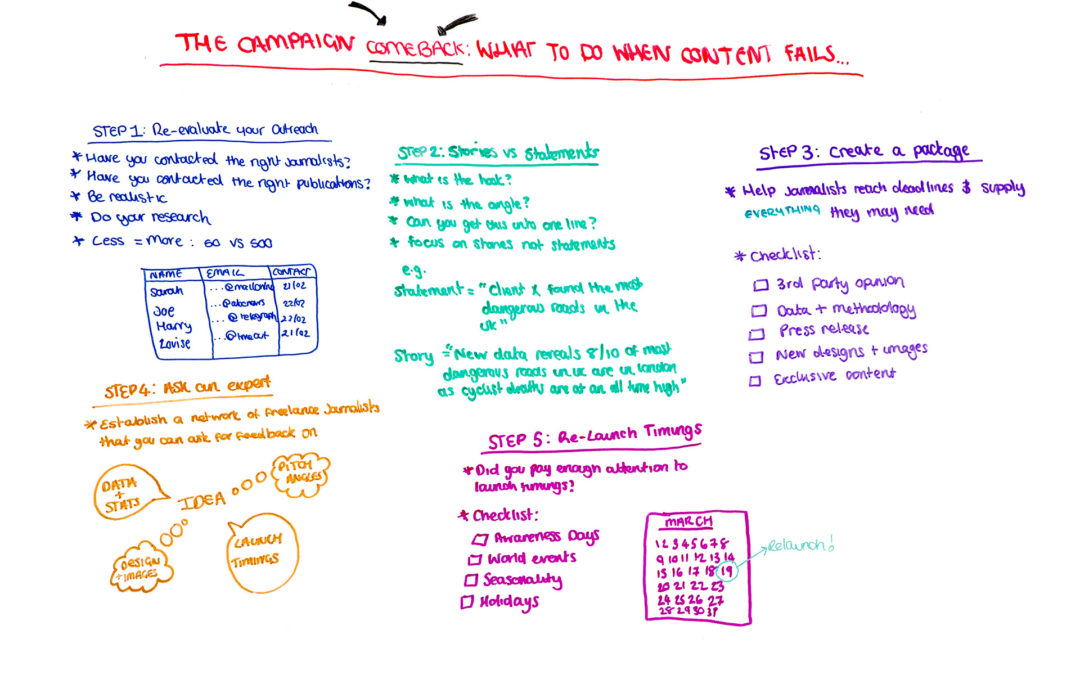 THE CAMPAIGN COMEBACK: WHAT TO DO WHEN CONTENT FAILS...
STEP 1: Re-evaluate your Outreach
* Have you contacted the right Journalists?
* Have you contacted the right publications?
* Be realistic
* Do your research
* Less = More : 50 VS 500
NAME EMAIL CONTACT
Sarah ...@mailonline 21/02
Joe ...@abcnews 22/02
Harry ...@telegraph 22/02
Louise ...@timeout 21/02
STEP 2: Stories vs Statements
* What is the hook?
* What is the angle?
* Can you get this into one line?
* focus on stories not statements
e.g.
Statement = "Client X found the most
dangerous roads in the
UK"
Story = "New data reveals 8/10 of most
dangerous roads in UK are in London
as cyclist deaths are at an all time high"
STEP 3: Create a package
* Help Journalists reach deadlines & supply
EVERYTHING they may need
* Checklist:
3rd party opinion
Data + methodology
Press release
New designs + images
Exclusive content
STEP 4: Ask an expert
* Establish a network of Freelance Journalists
that you can ask for feedback on
DATA
+
STATS
IDEA
PITCH
ANGLES
DESIGN
+ IMAGES
LAUNCH
TIMINGS
STEP 5: Re-Launch Timings
* Did you pay enough attention to
launch timings?
* Checklist:
Awareness Days
World events
Seasonality
Holidays
MARCH
1 2 3 4 5 6 7 8
9 10 11 12 13 14
15 16 17 18 19
20 21 22 23
24 25 26 27
28 29 30 31
Relaunch!